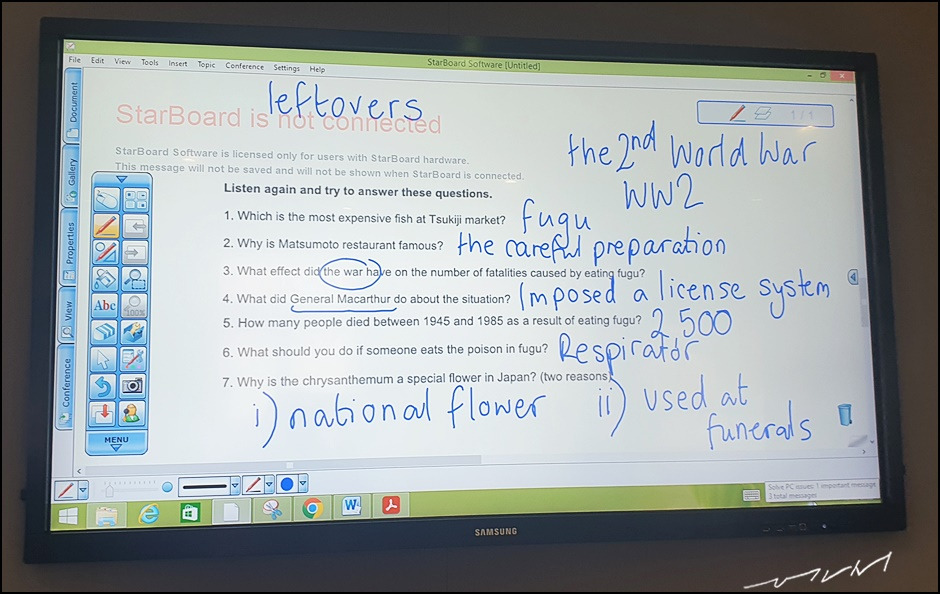 StarBoard Software [Untitled]
File Edit View Tools Insert Topic Conference Settings Help
leftovers
StarBoard is not connected
1 / 1
StarBoard Software is licensed only for users with StarBoard hardware.
This message will not be saved and will not be shown when StarBoard is connected.
the 2nd World War
WW2
Listen again and try to answer these questions.
1. Which is the most expensive fish at Tsukiji market? fugu
2. Why is Matsumoto restaurant famous? the careful preparation
3. What effect did the war have on the number of fatalities caused by eating fugu?
4. What did General Macarthur do about the situation? Imposed a license system
5. How many people died between 1945 and 1985 as a result of eating fugu? 2,500
6. What should you do if someone eats the poison in fugu? Respirator
7. Why is the chrysanthemum a special flower in Japan? (two reasons)
i) national flower ii) used at
funerals
Document
Gallery
Properties
View
Conference
Abc
100%
MENU
Solve PC issues: 1 important message
3 total messages
SAMSUNG